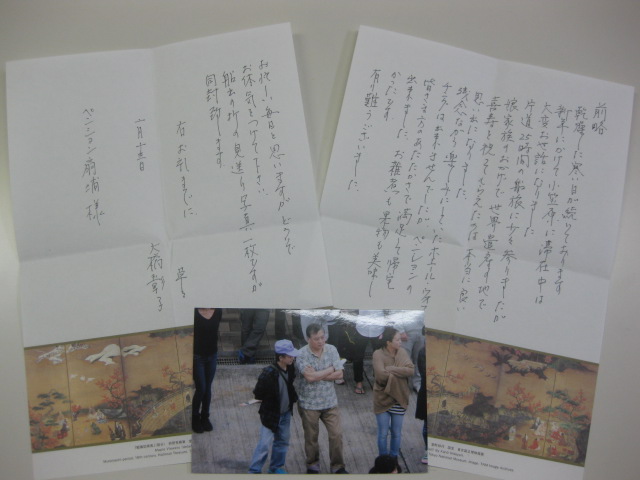 前略
乾燥した寒い日が続いております
新年にかけて小笠原に滞在中は
大変お世話になりました
片道25時間の船旅に少々参りましたが
娘家族のおかげで世界遺産の地で
喜寿を祝ってもらえたのは本当に良い
思い出になりました
残念ながら楽しみにしていたホエールウォッ
チングは出来ませんでしたが ペンションの
皆さま方のあたたかさで満足して帰宅
出来ました お雑煮も果物も美味し
かったです
有り難うございました
お忙しい毎日と思いますが どうぞ
お体気をつけて下さい
船出の折の見送り写真一枚ですが
同封致します
右お礼までに
草々
大橋 子
ペンション前浦 様